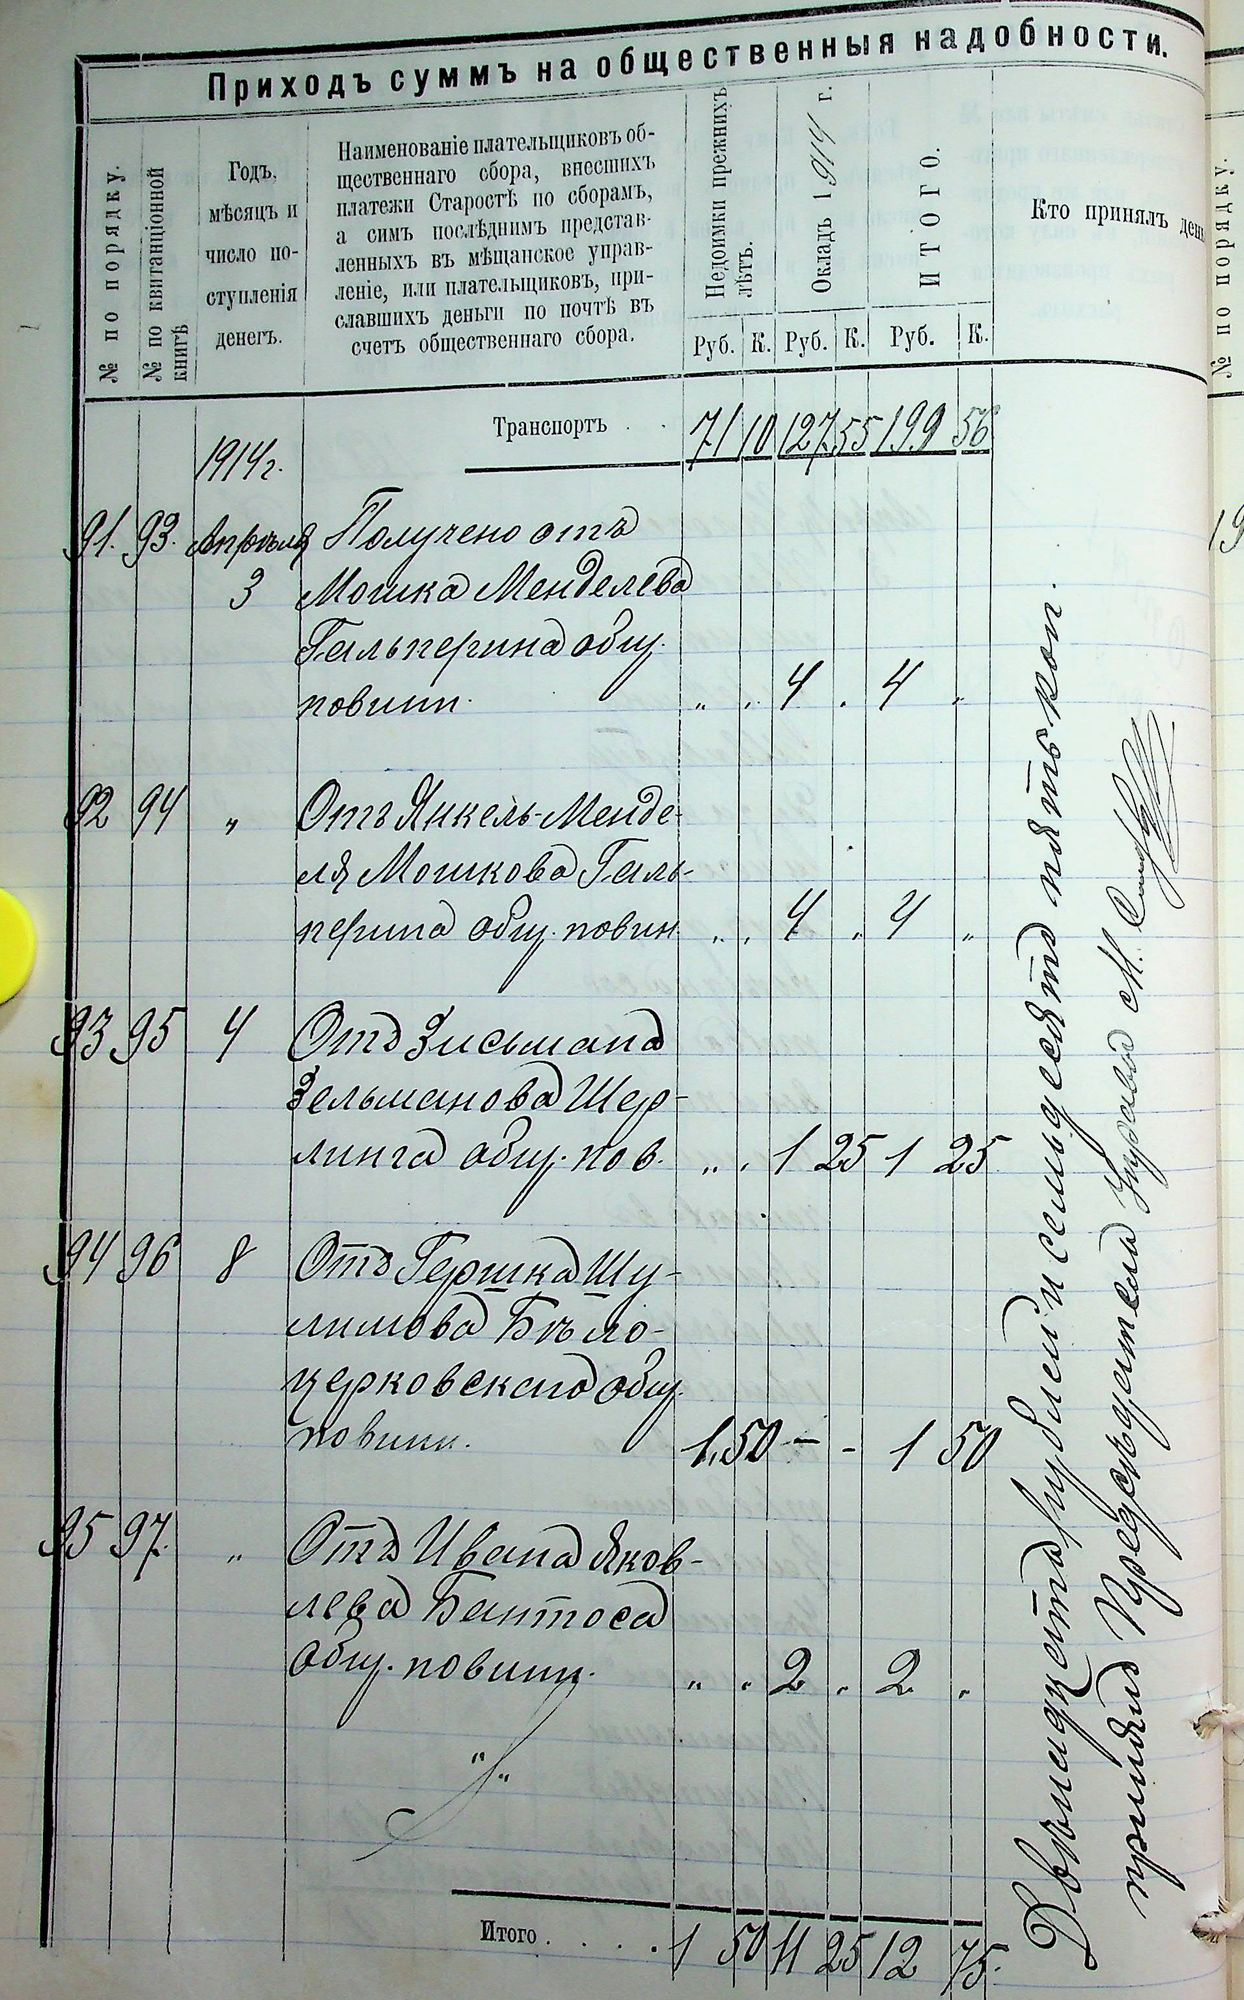 Приходъ суммъ на общественныя надобности.
№ по порядку.
№ по квитанціонной
книгѣ
Годъ,
мѣсяцъ и
число по-
ступленія
денегъ.
Наименованіе плательщиковъ об-
щественнаго сбора, внесшихъ
платежи Старостѣ по сборамъ,
а симъ послѣднимъ представ-
ленныхъ въ мѣщанское управ-
леніе, или плательщиковъ, при-
славшихъ деньги по почтѣ въ
счетъ общественнаго сбора.
Недоимки прежнихъ
лѣтъ.
Окладъ 1914 г.
ИТОГО.
Кто принялъ день
Руб. К. Руб. К. Руб. К.
Транспортъ . . 71 10 127 55 199 56
1914 г.
91. 93. Апрѣля Получено отъ
3 Мошка Менделева
Гальперина общ.
повин. " . 4 . 4 "
92 94 " Отъ Янкель-Менде-
ля Мошкова Галь-
перина общ. повин " . 4 . 4 "
93 95 4 Отъ Зисьмана
Зельманова Шер-
линга общ. пов. " . 1 25 1 25
94 96 8 Отъ Гершка Шу-
лимова Бѣло-
церковскаго общ.
повин. 1,50 - - 1 50
95 97. " Отъ Ивана Яков-
лева Бантоса
общ. повин. " . 2 . 2 .
" "
Итого . . . . 1 50 11 25 12 75.
Двѣнадцать рублей и семьдесятъ пять коп.
принялъ Предсѣдатель Управы М.
№ по порядку.
19